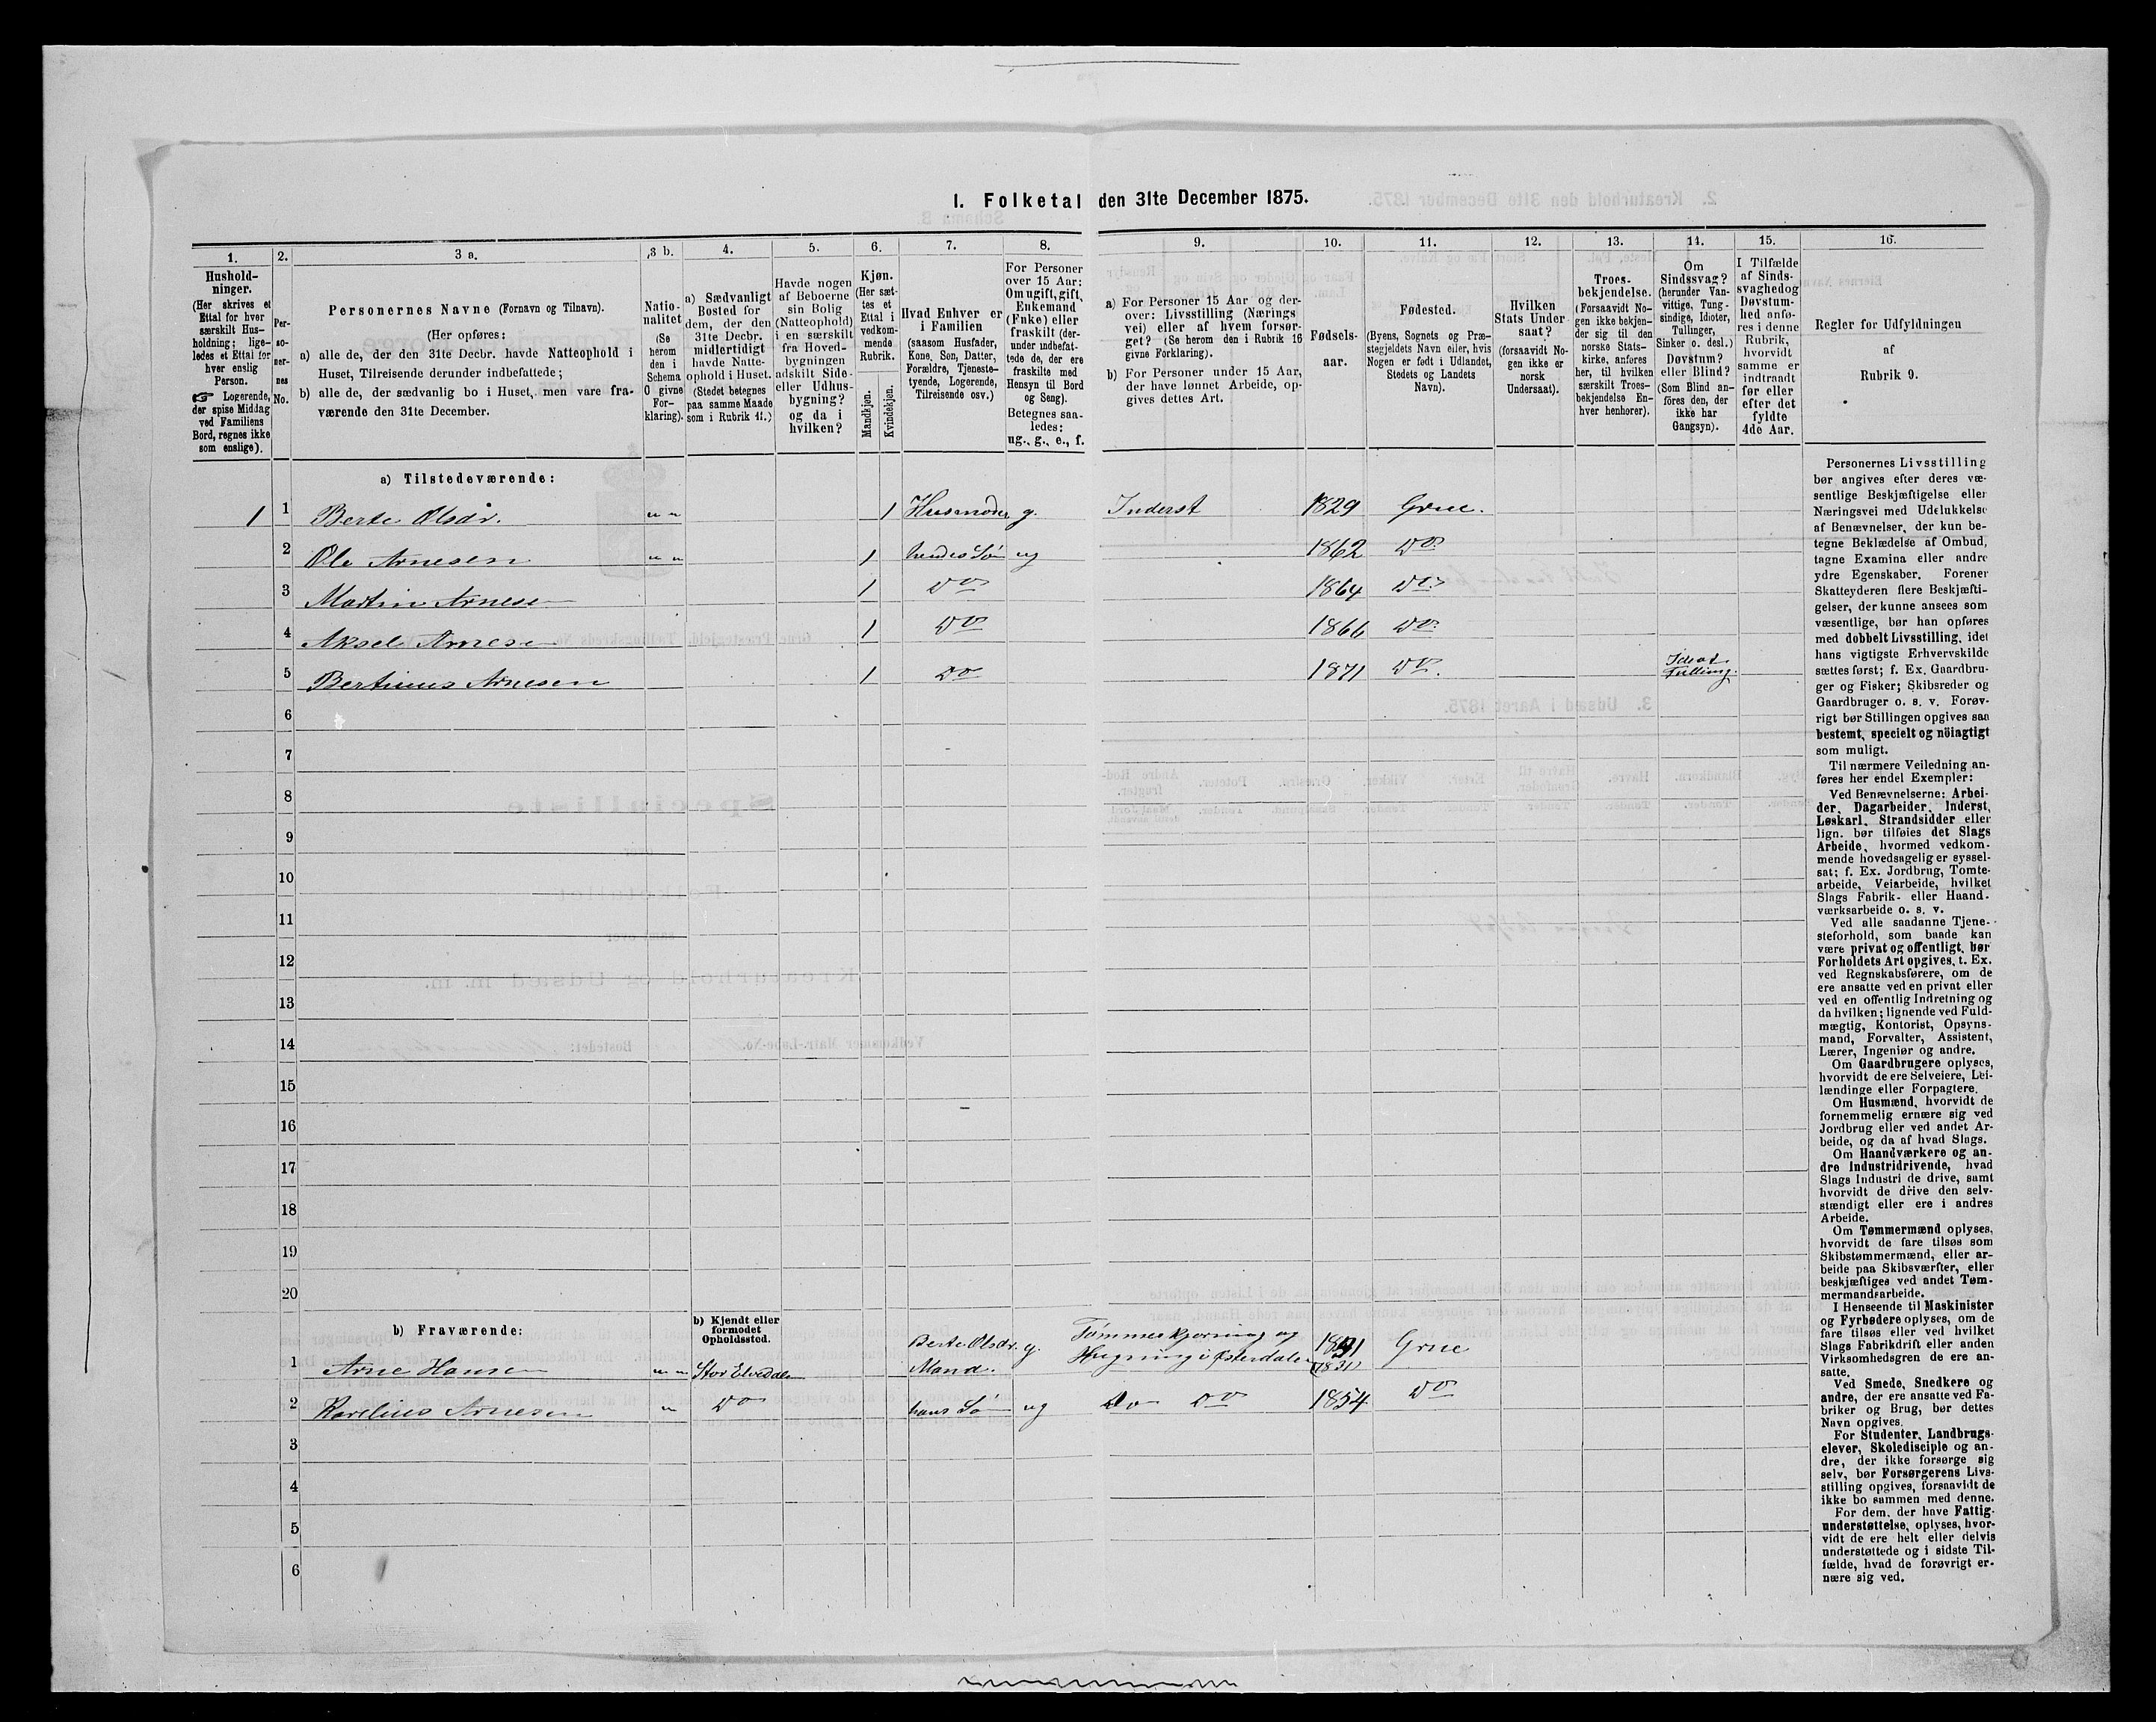 1. Folketal den 31te December 1875.
1.
Hushold-
ninger.
(Her skrives et
Ettal for hver
særskilt Hus-
holdning; lige-
ledes et Ettal for
hver enslig
Person.
☞ Logerende,
der spise Middag
ved Familiens
Bord, regnes ikke
som enslige).
2.
Per-
so-
ner-
nes
No.
3 a.
Personernes Navne (Fornavn og Tilnavn).
(Her opføres:
a) alle de, der den 31te Decbr. havde Natteophold i
Huset, Tilreisende derunder indbefattede;
b) alle de, der sædvanlig bo i Huset, men vare fra-
værende den 31te December.
3 b.
Natio-
nalitet
(Se
herom
den i
Schema
O givne
For-
klaring).
4.
a) Sædvanligt
Bosted for
dem, der den
31te Decbr.
midlertidigt
havde Natte-
ophold i Huset.
(Stedet betegnes
paa samme Maade
som i Rubrik 11.)
5.
Havde nogen
af Beboerne
sin Bolig
(Natteophold)
i en særskilt
fra Hoved-
bygningen
adskilt Side-
eller Udhus-
bygning?
og da i
hvilken?
6.
Kjøn.
(Her sæt-
tes et
Ettal i
vedkom-
mende
Rubrik.
Mandkjøn.
Kvindekjøn.
7.
Hvad Enhver er
i Familien
(saasom Husfader,
Kone, Søn, Datter,
Forældre, Tjeneste-
tyende, Logerende,
Tilreisende osv.)
8.
For Personer
over 15 Aar:
Om ugift, gift,
Enkemand
(Enke) eller
fraskilt (der-
under indbefat-
tede de, der ere
fraskilte med
Hensyn til Bord
og Seng).
Betegnes saa-
ledes:
ug., g., e., f.
9.
a) For Personer 15 Aar og der-
over: Livsstilling (Nærings
vei) eller af hvem forsør-
get? (Se herom den i Rubrik 16
givne Forklaring).
b) For Personer under 15 Aar,
der have lønnet Arbeide, op-
gives dettes Art.
10.
Fødsels-
aar.
11.
Fødested.
(Byens, Sognets og Præ-
stegjeldets Navn eller, hvis
Nogen er født i Udlandet,
Stedets og Landets
Navn).
12.
Hvilken
Stats Under
saat?
(forsaavidt No-
gen ikke er
norsk
Undersaat).
13.
Troes-
bekjendelse.
(Forsaavidt No-
gen ikke bekjen-
der sig til den
norske Stats-
kirke, anføres
her, til hvilken
særskilt Troes-
bekjendelse En-
hver henhører).
14.
Om
Sindssvag?
(herunder Van-
vittige, Tung-
sindige, Idioter,
Tullinger,
Sinker o. desl.)
Døvstum?
eller Blind?
(Som Blind an-
føres den, der
ikke har
Gangsyn).
15.
I Tilfælde
af Sinds-
svaghed og
Døvstum-
hed anfø-
res i denne
Rubrik,
hvorvidt
samme er
indtraadt
før eller
efter det
fyldte
4de Aar.
16.
Regler for Udfyldningen
af
Rubrik 9.
a) Tilstedeværende:
1 1 Berte Olsdr. " " 1 Husmoder g. Inderst 1829 Grue.
2 Ole Arnesen " " 1 hendes Søn ug 1862 Do
3 Martin Arnesen 1 Do 1864 Do
4 Aksel Arnesen 1 Do 1866 Do
5 Bertinus Arnesen 1 Do 1871 Do. Idiot
Tulling.
6
7
8
9
10
11
12
13
14
15
16
17
18
19
20
b) Fraværende:
b) Kjendt eller
formodet
Opholdssted.
1 Arne Hansen " " Stor Elvedalen Berte Olsdr. Mand. g. Tømmerkjørning og
Hugning i Østerdalen (1831) Grue
2 Karelius Arnesen " Do hans Søn ug Do Do 1854 Do
3
4
5
6
Personernes Livsstilling
bør angives efter deres væ-
sentlige Beskjæftigelse eller
Næringsvei med Udelukkelse
af Benævnelser, der kun be-
tegne Beklædelse af Ombud,
tagne Examina eller andre
ydre Egenskaber. Forener
Skatteyderen flere Beskjæfti-
gelser, der kunne ansees som
væsentlige, bør han opføres
med dobbelt Livsstilling, idet
hans vigtigste Erhvervskilde
sættes først; f. Ex. Gaardbru-
ger og Fisker; Skibsreder og
Gaardbruger o. s. v. Forøv-
rigt bør Stillingen opgives saa
bestemt, specielt og nöiagtigt
som muligt.
Til nærmere Veiledning an-
føres her endel Exempler:
Ved Benævnelserne: Arbei-
der, Dagarbeider, Inderst,
Løskarl, Strandsidder eller
lign. bør tilføies det Slags
Arbeide, hvormed vedkom-
mende hovedsagelig er syssel-
sat; f. Ex. Jordbrug, Tomte-
arbeide, Veiarbeide, hvilket
Slags Fabrik- eller Haand-
værksarbeide o. s. v.
Ved alle saadanne Tjene-
steforhold, som baade kan
være privat og offentligt, bør
Forholdets Art opgives, t. Ex.
ved Regnskabsførere, om de
ere ansatte ved en privat eller
ved en offentlig Indretning og
da hvilken; lignende ved Fuld-
mægtig, Kontorist, Opsyns-
mand, Forvalter, Assistent,
Lærer, Ingeniør og andre.
Om Gaardbrugere oplyses,
hvorvidt de ere Selveiere, Lei-
lændinge eller Forpagtere.
Om Husmænd, hvorvidt de
fornemmelig ernære sig ved
Jordbrug eller ved andet Ar-
beide, og da af hvad Slags.
Om Haandværkere og an-
dre Industridrivende, hvad
Slags Industri de drive, samt
hvorvidt de drive den selv-
stændigt eller ere i andres
Arbeide.
Om Tømmermænd oplyses,
hvorvidt de fare tilsøs som
Skibstømmermænd, eller ar-
beide paa Skibsværfter, eller
beskjæftiges ved andet Tøm-
mermandsarbeide.
I Henseende til Maskinister
og Fyrbødere oplyses, om de
fare tilsøs eller ved hvilket
Slags Fabrikdrift eller anden
Virksomhedsgren de ere an-
satte.
Ved Smede, Snedkere og
andre, der ere ansatte ved Fa-
briker og Brug, bør dettes
Navn opgives.
For Studenter, Landbrugs-
elever, Skoledisciple og an-
dre, der ikke forsørge sig
selv, bør Forsørgerens Livs-
stilling opgives, forsaavidt de
ikke bo sammen med denne.
For dem, der have Fattig-
understøttelse, oplyses, hvor-
vidt de ere helt eller delvis
understøttede og i sidste Til-
fælde, hvad de forøvrigt er-
nære sig ved.